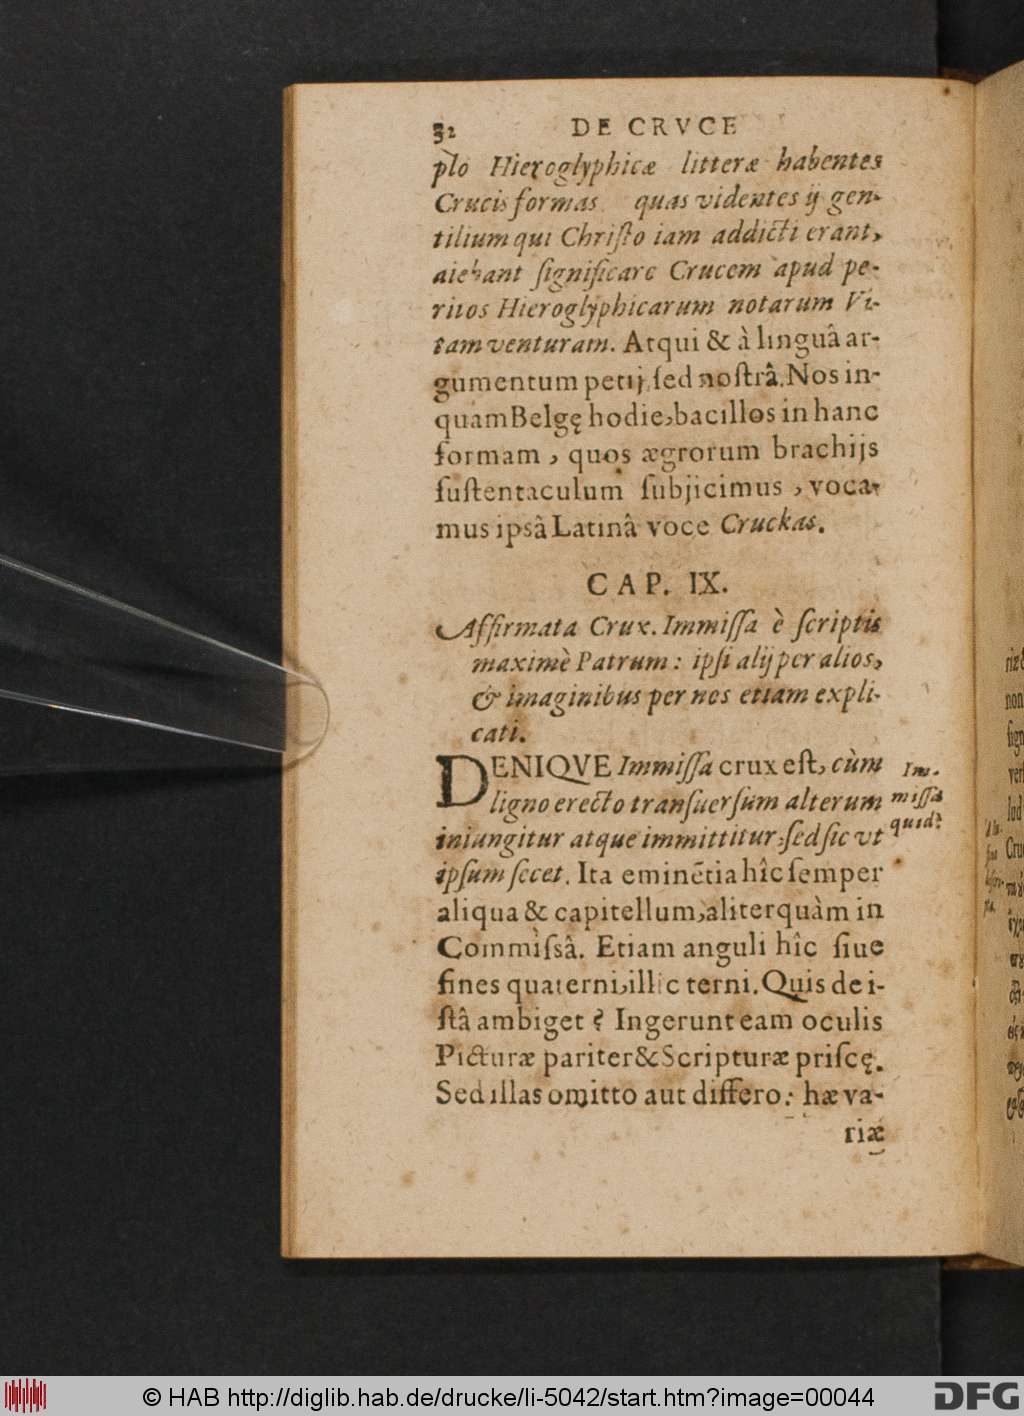 32 DE CRVCE
plo Hieroglyphicæ litteræ habentes
Crucis formas quas videntes ij gen-
tilium qui Chriſto iam addicti erant,
aiebant ſignificare Crucem apud pe-
ritos Hieroglyphicarum notarum Vi-
tam venturam. Atqui & à linguâ ar-
gumentum petij, ſed noſtrâ. Nos in-
quam Belgę hodie, bacillos in hanc
formam, quos ægrorum brachijs
ſuſtentaculum ſubjicimus, voca-
mus ipsâ Latinâ voce Cruckas.
CAP. IX.
Affirmata Crux. Immiſſa è ſcriptis
maximè Patrum: ipſi alij per alios,
& imaginibus per nos etiam expli-
cati.
DENIQVE Immiſſa crux eſt, cùm
ligno erecto tranſuerſum alterum
iniungitur atque immittitur, ſed ſic vt
ipſum ſecet. Ita eminẽtia hîc ſemper
aliqua & capitellum, aliter quàm in
Commiſsâ. Etiam anguli hîc ſiue
fines quaterni, illic terni. Quis de i-
ſtâ ambiget? Ingerunt eam oculis
Picturæ pariter & Scripturæ priſcę.
Sed illas omitto aut differo: hæ va-
riæ
Im-
miſſa
quid?
© HAB http://diglib.hab.de/drucke/li-5042/start.htm?image=00044
DFG